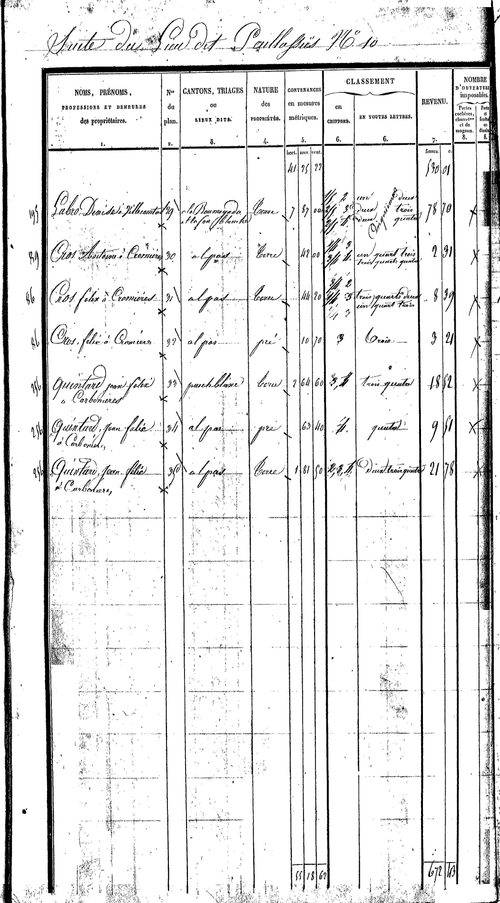 Suite du Lieu dit Paillassiés N° 10
NOMS, PRÉNOMS,
PROFESSIONS ET DEMEURES
des propriétaires.
1.
Nos
du
plan.
2.
CANTONS, TRIAGES
ou
LIEUX DITS.
3.
NATURE
des
PROPRIÉTÉS.
4.
CONTENANCES
en mesures
métriques.
5.
CLASSEMENT
en
CHIFFRES.
6.
EN TOUTES LETTRES.
6.
REVENU.
7.
NOMBRE
D'OUVERTURES
imposables.
Portes
cochères,
charretières
et de
magasin.
8.
hect. ares cent. francs. c.
41 25 22 530 01
195 Labro Denis à 29 terre 7 87 00 78 70 x
819 Cros Antoine à Cromières 30 al pas terre 42 00 un quart trois trois quarts quatre 2 31 x
86 Cros felix à Cromières 31 al pas terre 44 20 trois quarts deux un quart trois 8 39 x
86 Cros felix à Cromières 32 al pas pré 10 70 3 trois 3 21
256 Quintard jean felix 33 terre 2 64 60 3, 4 trois quatre 18 52 x
à Carbonieres
256 Quintard, jean felix 34 al pas pré 63 40 4 quatre 9 51 x
à Carbonieres
256 Quintard, jean felix 35 al pas terre 1 81 50 2, 3, 4 Deux trois quatre 21 78 x
à Carbonieres
55 18 62 672 43